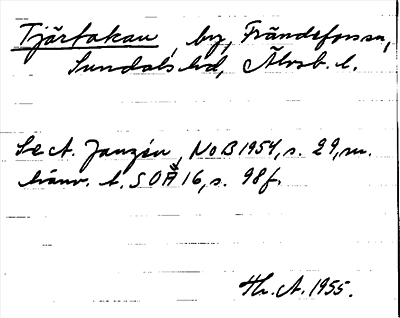 Tjärtakan, by, Frändefors sn,
Sundals hd, Älvsb. l.
Se A. Janzén, NoB 1954, s. 29, m.
hänv. t. SOÄ 16, s. 98 f.
Th. A. 1955.